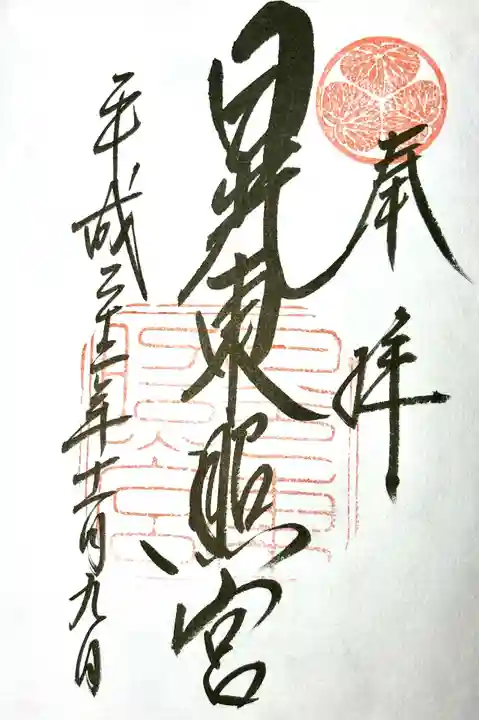 奉拝
日 東照宮
平成二十 年十一月九日